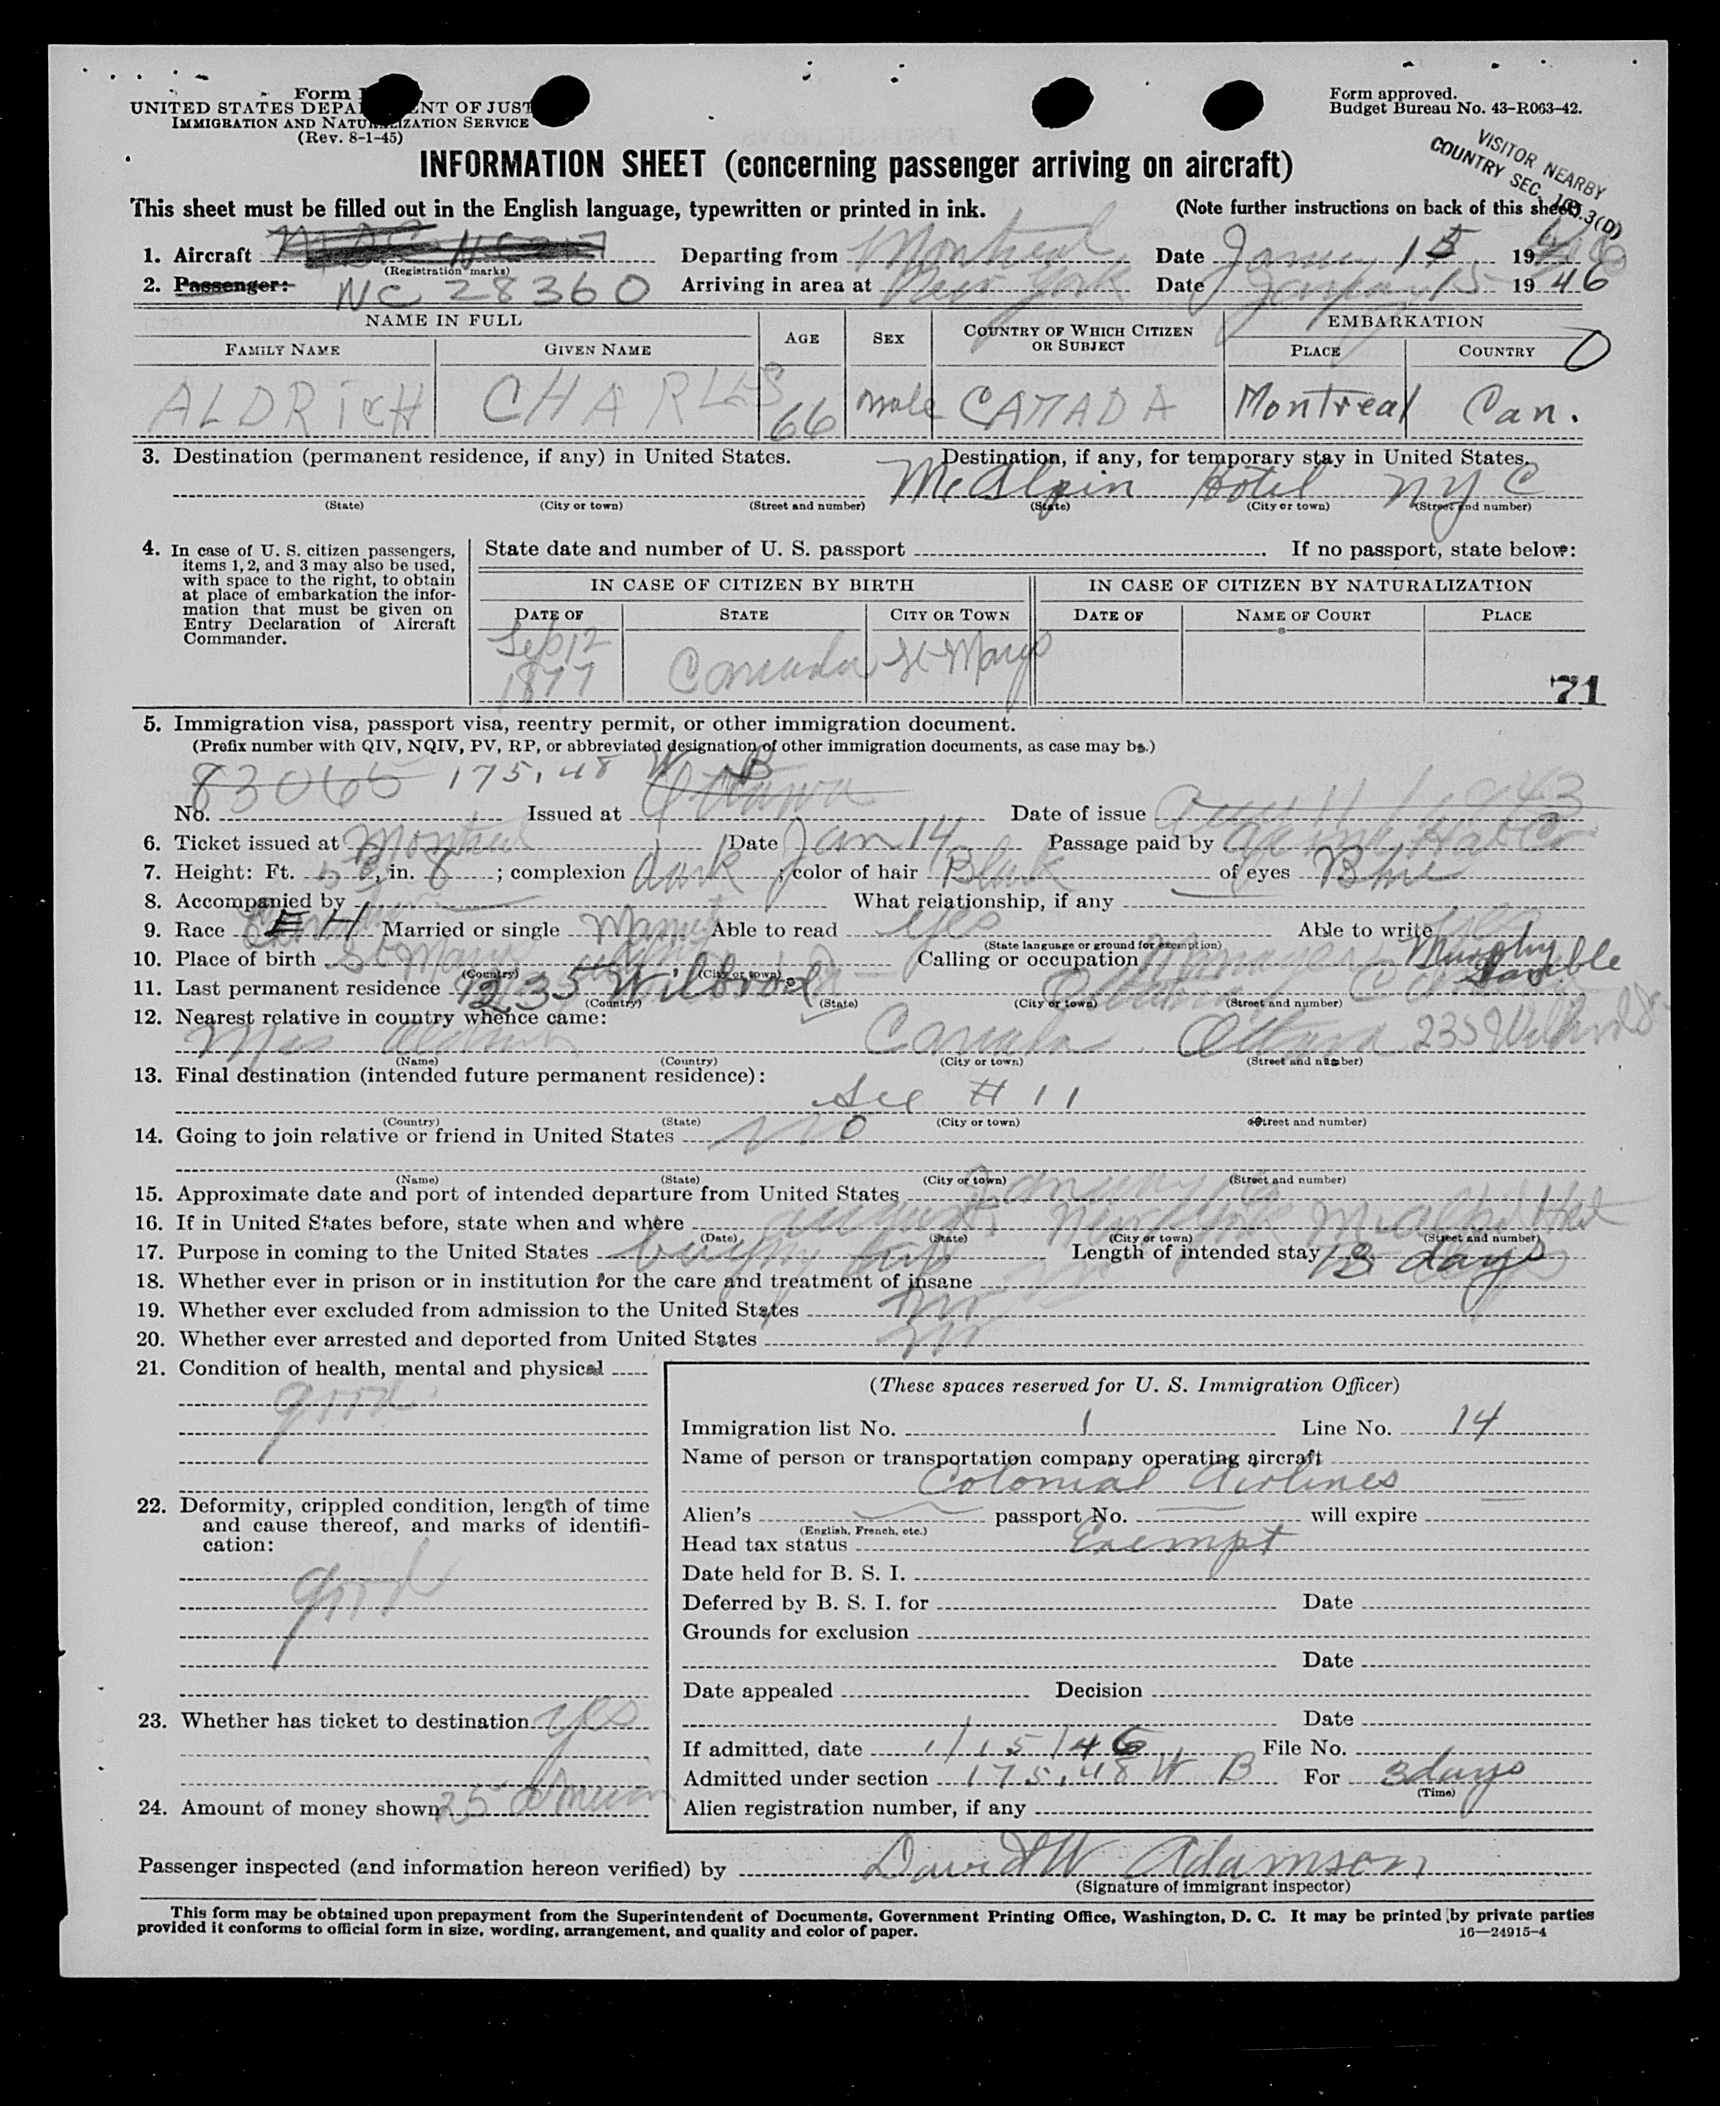 Form
UNITED STATES DEPA ENT OF JUST
IMMIGRATION AND NATURALIZATION SERVICE
(Rev. 8-1-45)
Form approved.
Budget Bureau No. 43-R063-42.
VISITOR NEARBY
COUNTRY SEC. 3(D)
INFORMATION SHEET (concerning passenger arriving on aircraft)
This sheet must be filled out in the English language, typewritten or printed in ink. (Note further instructions on back of this sheet)
1. Aircraft (Registration marks) Departing from Montreal Date January 15 19
2. Passenger: NC 28360 Arriving in area at New York Date January 15 19 46
NAME IN FULL AGE SEX COUNTRY OF WHICH CITIZEN OR SUBJECT EMBARKATION
FAMILY NAME GIVEN NAME PLACE COUNTRY O
ALDRICH CHARLES 66 male CANADA Montreal Can.
3. Destination (permanent residence, if any) in United States. Destination, if any, for temporary stay in United States.
McAlpin Hotel NYC
(State) (City or town) (Street and number) (State) (City or town) (Street and number)
4. In case of U. S. citizen passengers, items 1, 2, and 3 may also be used, with space to the right, to obtain at place of embarkation the information that must be given on Entry Declaration of Aircraft Commander.
State date and number of U. S. passport . If no passport, state below:
IN CASE OF CITIZEN BY BIRTH IN CASE OF CITIZEN BY NATURALIZATION
DATE OF STATE CITY OR TOWN DATE OF NAME OF COURT PLACE
Sep 12 1877 Canada St Marys
71
5. Immigration visa, passport visa, reentry permit, or other immigration document.
(Prefix number with QIV, NQIV, PV, RP, or abbreviated designation of other immigration documents, as case may be.)
83065 175.48 W B
No. Issued at Ottawa Date of issue 11 1943
6. Ticket issued at Montreal Date Jan 14 Passage paid by
7. Height: Ft. 5, in. 8; complexion dark; color of hair Black of eyes Blue
8. Accompanied by What relationship, if any
9. Race Married or single Married Able to read Yes Able to write Yes
(State language or ground for exemption)
10. Place of birth St Marys Calling or occupation Manager
(Country) (City or town)
11. Last permanent residence 235 Wilbrod Ottawa
(Country) (State) (City or town) (Street and number)
12. Nearest relative in country whence came:
Mrs Aldrich Canada Ottawa 235 Wilbrod St
(Name) (Country) (City or town) (Street and number)
13. Final destination (intended future permanent residence):
See # 11
(Country) (State) (City or town) (Street and number)
14. Going to join relative or friend in United States No
(Name) (State) (City or town) (Street and number)
15. Approximate date and port of intended departure from United States January
16. If in United States before, state when and where August New York McAlpin Hotel
(Date) (State) (City or town) (Street and number)
17. Purpose in coming to the United States buying trip Length of intended stay 3 days
18. Whether ever in prison or in institution for the care and treatment of insane no
19. Whether ever excluded from admission to the United States no
20. Whether ever arrested and deported from United States no
21. Condition of health, mental and physical
good
22. Deformity, crippled condition, length of time and cause thereof, and marks of identification:
good
23. Whether has ticket to destination yes
24. Amount of money shown 25 American
(These spaces reserved for U. S. Immigration Officer)
Immigration list No. 1 Line No. 14
Name of person or transportation company operating aircraft
Colonial Airlines
Alien's passport No. will expire
(English, French, etc.)
Head tax status Exempt
Date held for B. S. I.
Deferred by B. S. I. for Date
Grounds for exclusion
Date
Date appealed Decision
Date
If admitted, date 1/15/46 File No.
Admitted under section 175.48 W B For 3 days
(Time)
Alien registration number, if any
Passenger inspected (and information hereon verified) by David W Adamson
(Signature of immigrant inspector)
This form may be obtained upon prepayment from the Superintendent of Documents, Government Printing Office, Washington, D. C. It may be printed by private parties
provided it conforms to official form in size, wording, arrangement, and quality and color of paper. 16—24915-4